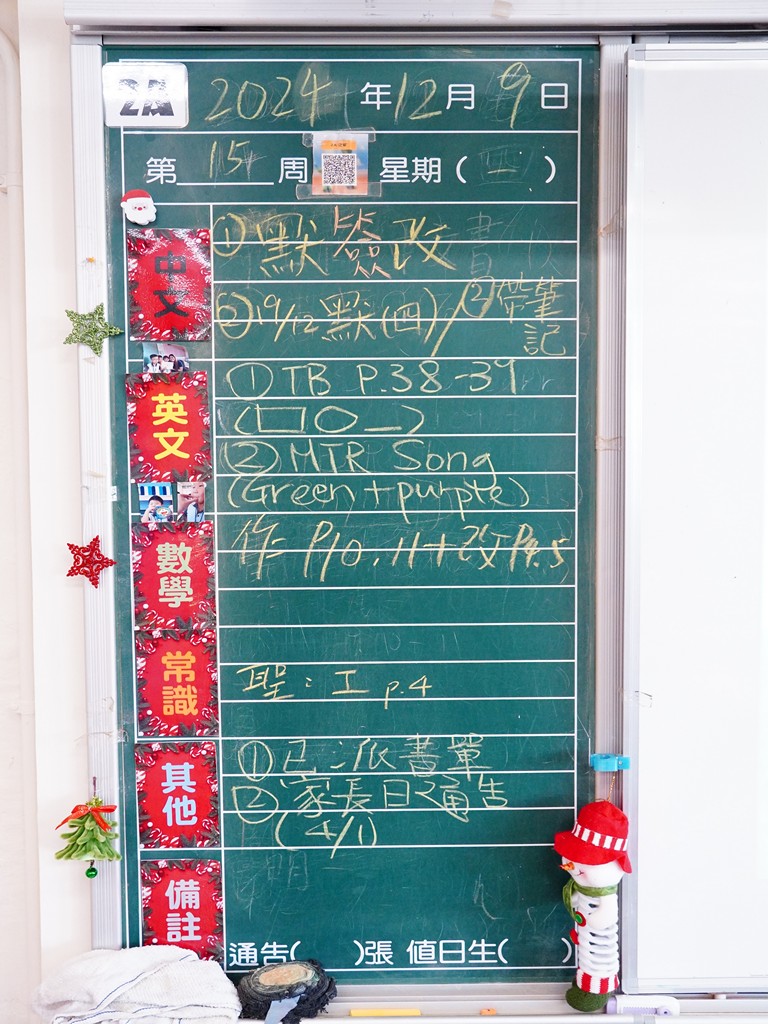 2A
2024年12月9日
第15周 星期(一)
中文
①默簽改
②19/12默(四)/②帶筆記
英文
①TB P.38-39
(▭○_)
②MTR Song
(Green+purple)
數學
作P10.11+改P4.5
常識
聖:工 p.4
其他
①已派書單
②家長日之通告
(4/1)
備註
通告( )張 值日生( )